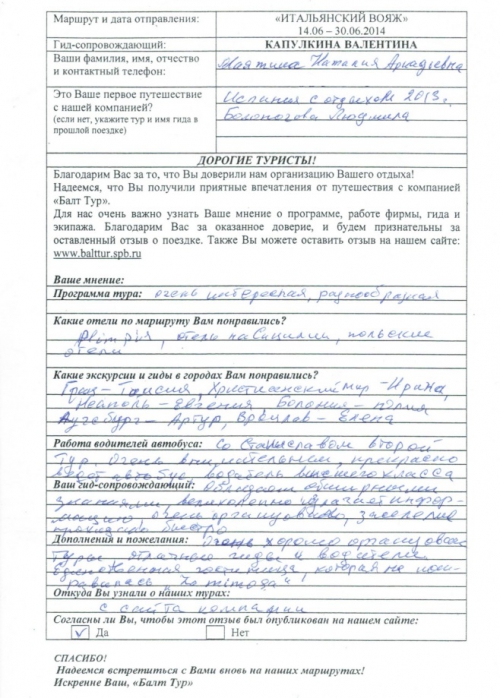 Маршрут и дата отправления: «ИТАЛЬЯНСКИЙ ВОЯЖ»
14.06 – 30.06.2014
Гид-сопровождающий: КАПУЛКИНА ВАЛЕНТИНА
Ваши фамилия, имя, отчество
и контактный телефон: Наталия Аркадьевна
Это Ваше первое путешествие
с нашей компанией?
(если нет, укажите тур и имя гида в
прошлой поездке)
Испания с отдыхом 2013 г,
Людмила
ДОРОГИЕ ТУРИСТЫ!
Благодарим Вас за то, что Вы доверили нам организацию Вашего отдыха!
Надеемся, что Вы получили приятные впечатления от путешествия с компанией
«Балт Тур».
Для нас очень важно узнать Ваше мнение о программе, работе фирмы, гида и
экипажа. Благодарим Вас за оказанное доверие, и будем признательны за
оставленный отзыв о поездке. Также Вы можете оставить отзыв на нашем сайте:
www.balttur.spb.ru
Ваше мнение:
Программа тура: очень интересная, разнообразная
Какие отели по маршруту Вам понравились?
отель на Сицилии, польские
отели
Какие экскурсии и гиды в городах Вам понравились?
Грац – Таисия, Христианский мир - Ирина,
Неаполь – Евгения Болонья – Юлия
Аугсбург – Артур, Вроцлав – Елена
Работа водителей автобуса: Со Станиславом второй
тур. Очень внимательный, прекрасно
автобус водитель высшего класса
Ваш гид-сопровождающий: Обладает обширными
знаниями великолепно
очень организованно, заселение
быстро
Дополнения и пожелания: Очень хорошо организован
гиды и водители
Единственная гостиница, которая не пон-
равилась
Откуда Вы узнали о наших турах:
с сайта компании
Согласны ли Вы, чтобы этот отзыв был опубликован на нашем сайте:
✓ Да Нет
СПАСИБО!
Надеемся встретиться с Вами вновь на наших маршрутах!
Искренне Ваш, «Балт Тур»